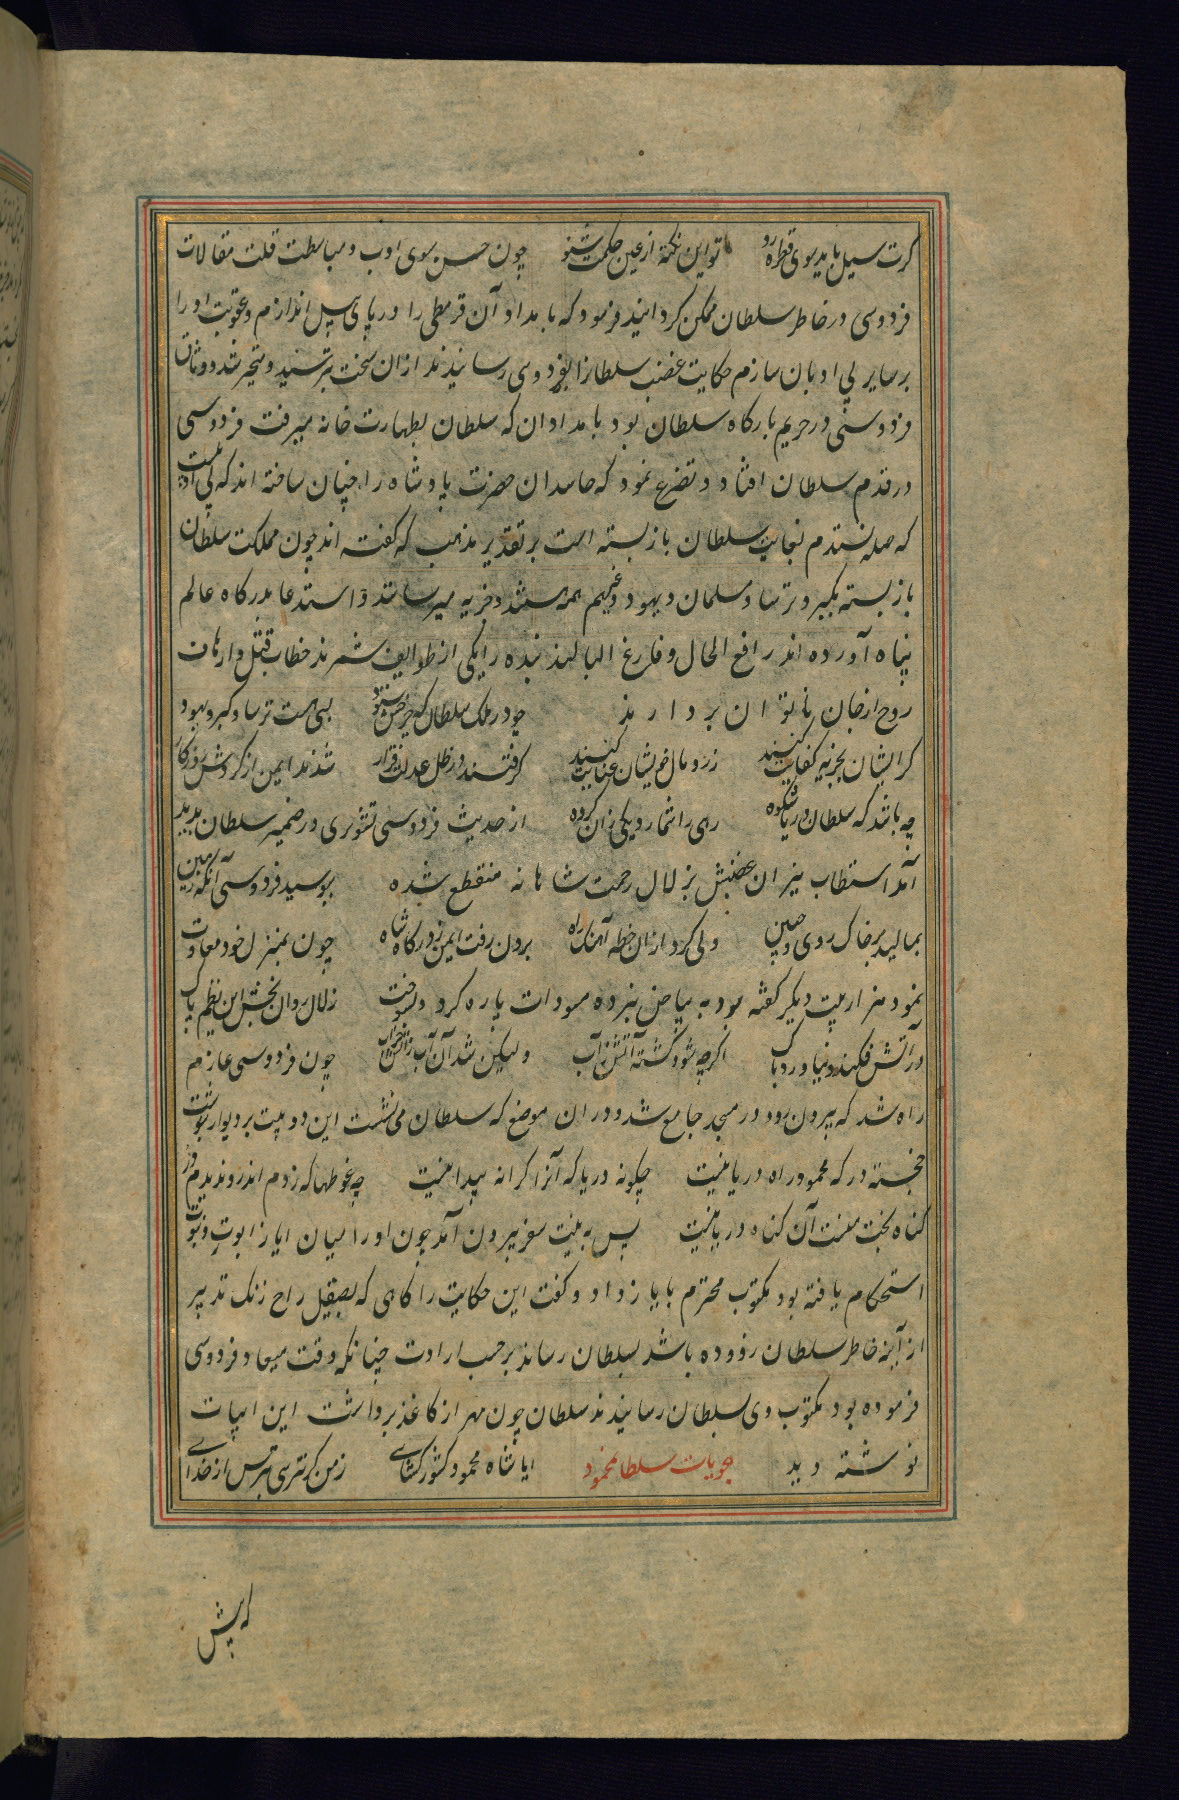 کرت سیل باید سوی قطره رو تو این نکته از عین حکمت شنو چون حسن سوی ادب و مباسطت قلت مقالات
فردوسی در خاطر سلطان ممکن کردانید فرمود که بامداد آن قرمطی را در پای پیل اندازم و عقوبت او را
بر سایر بی ادبان سازم حکایت غضب سلطان را بفردوسی رسانیدند از آن سخت بترسید و متحیر شد و وثاق
فردوسی در حریم بارکاه سلطان بود بامدادان که سلطان بطهارت خانه میرفت فردوسی
در قدم سلطان افتاد و تضرع نمود که حاسدان حضرت پادشاه را چنان ساخته اند که بی ادبیست
که صله نستدم بجانب سلطان باز بسته است بر تقدیر مذهب که کفته اند چون مملکت سلطان
باز بسته بکبر و ترسا و مسلمان و یهود و غیرهم همه هستند و جزیه میرسانند و استدعا بدرکاه عالم
پناه آورده اند رافع الحال و فارغ البالند بنده را یکی از طوایف شمرند خطاب قتل و ارهاق
روح از جان ناتوان بردارند چو در ملک سلطان که چرخش ستود بسی هست ترسا و کبر و یهود
کر ایشان بجزیه کفایت کنند زر و مال خویشان عنایت کنند کرفتند در ظل عدلت قرار شدند ایمن از کردش روزکار
چه باشد که سلطان دریا شکوه رهی را شمارد یکی زان کروه از حدیث فردوسی تشویری در ضمیر سلطان پدید
آمد استطاب نیران غضبش بزلال رحمت شاهانه منقطع شده ببوسید فردوسی آنکه زمین
بمالید بر خاک روی و جبین ولی کرد از آن خطه آهنک راه برون رفت ایمن ز درکاه شاه چون بمنزل خود معاودت
نمود هزار بیت دیکر کفته بود به بیاض نبرده مسودات پاره کرد و بسوخت زلال روان بخش این نظم پاک
در آتش فکند و نیاورد باک اکرچه شود کشته آتش ز آب ولیکن شد آن آب ز آتش خراب چون فردوسی عازم
راه شد که بیرون رود در مسجد جامع شد و در آن موضع که سلطان می نشست این دو بیت بر دیوار نوشت
خجسته درکه محمود راه دریا نیست چکونه دریا که آنرا کرانه پیدا نیست چه غوطها که زدم اندرو ندیدم در
کناه بخت منست آن کناه دریا نیست پس به نیت سفر بیرون آمد چون او را میان ایاز ابوت و بنوت
استحکام یافته بود مکتوب محترم بایاز داد و کفت این حکایت را کاهی که بصیقل راح زنک تدبیر
از آینه خاطر سلطان زدوده باشد بسلطان رساند بر حسب ارادت چنانکه وقت میعاد فردوسی
فرموده بود مکتوب وی بسلطان رسانیدند سلطان چون مهر از کاغذ برداشت این ابیات
نوشته دید هجویات سلطان محمود ایا شاه محمود کشور کشای ز من کر نترسی بترس از خدای
که پیش